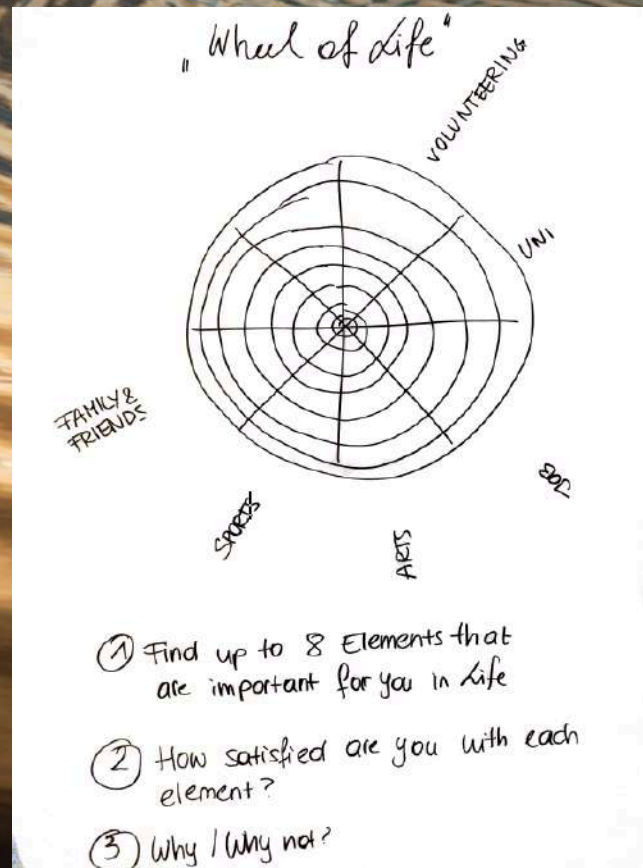 „Wheel of Life“
VOLUNTEERING
UNI
JOB
ARTS
SPORTS
FAMILY &
FRIENDS
① Find up to 8 Elements that
are important for you in Life
② How satisfied are you with each
element?
③ Why / Why not?